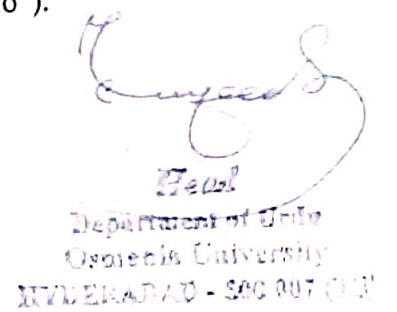 ).
Head
Department of Urdu
Osmania University
HYDERABAD - 500 007